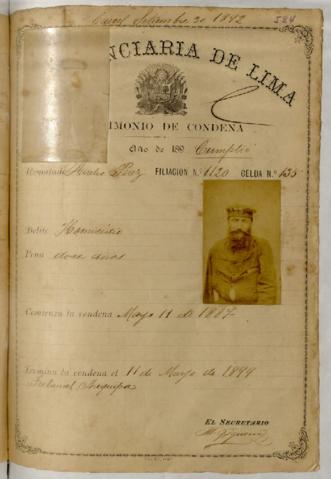 Setiembre 20 1892
584
NCIARIA DE LIMA
IMONIO DE CONDENA
Año de 189 Cumplió
Rematado Perez FILIACION N.º 1120 CELDA N.º 135
Delito Homicidio
Pena doce años
Comienza la condena Mayo 11 de 1887.
Termina la condena el 11 de Mayo de 1899
Tribunal Arequipa
EL SECRETARIO